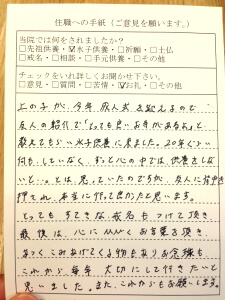 住職への手紙（ご意見を願います。）
当院では何をされましたか？
□先祖供養・☑水子供養・□祈願・□土仏
□戒名・□相談・□手元供養・□その他
チェックをいれ詳しくお聞かせ下さい。
□意見・□質問・□苦情・☑お礼・□その他
上の子が、今年成人式を迎えるので
友人の紹介で「とっても良いお寺があるよ」と
教えてもらい水子供養に来ました。20年ぐらい
何も、していなく、ずっと心の中では供養をしな
いと…。とは、思っていたのですが、友人に背中を
押され、本当に行って良かったと思います。
とっても すてきな 戒名も つけて頂き
最後は、心に ひびく お言葉を 頂き、
これから 毎年 大切にして行きたいと
思いました。また、これからもお願いします。